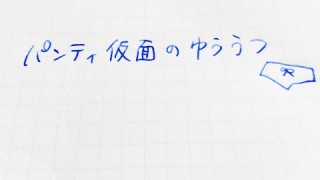 パンティ仮面のゆううつ